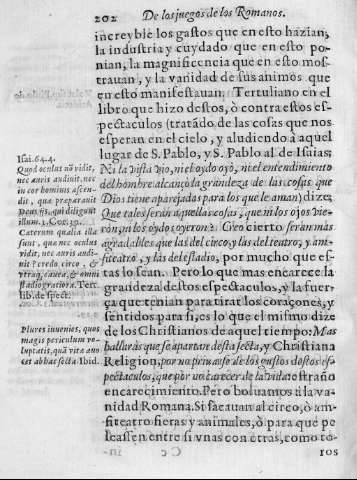 202 De los juegos de los Romanos.
increyble los gastos que en esto hazian,
la industria y cuydado que en esto po-
nian, la magnificencia que en esto mos-
trauan, y la vanidad de sus animos que
en esto manifestauan. Tertuliano en el
libro que hizo destos, ò contra estos es-
pectaculos (tratádo de las cosas que nos
esperan en el cielo, y aludiendo à aquel
lugar de S. Pablo, y S. Pablo al de Isaias;
Ni la vista vio, ni el oydo oyò, ni el entendimiento
del hombre alcançò la grandeza de las cosas que
Dios tiene aparejadas para los que le aman) dize;
Que tales serán aquellas cosas, que ni los ojos vie-
ron, ni los oydos oyeron? Creo cierto serán mas
agradables que las del circo, y las del teatro, y am-
fiteatro, y las del estadio, por mucho que es-
tas lo sean. Pero lo que mas encarece la
grandeza destos espectaculos, y la fuer-
ça que tenian para tirar los coraçones, y
sentidos para si, es lo que el mismo dize
de los Christianos de aquel tiempo: Mas
hallaràs que se apartan desta secta, y Christiana
Religion, por no priuarse de los gustos destos es-
pectaculos, que por no carecer de la vida: estraño
encarecimiento. Pero boluamos à la va-
nidad Romana. Si sacauan al circo, ò am-
fiteatro fieras y animales, ò para que pe-
leassen entre si vnas con otras, como to-
ros
Isai. 64.4.
Quod oculus nō vidit,
nec auris audiuit, nec
in cor hominis ascen-
dit, quæ præparauit
Deus ijs, qui diligunt
illum. 1. Cor. 2.9.
Caterum qualia illa
sunt, quæ nec oculus
vidit, nec auris audi-
uit? credo circo, &
vtraq; cauea, & omni
stadio gratiora. Tert.
lib. de spect.
Plures inuenies, quos
magis periculum vo-
luptatis, quā vitæ auo
cet ab hac secta. Ibid.